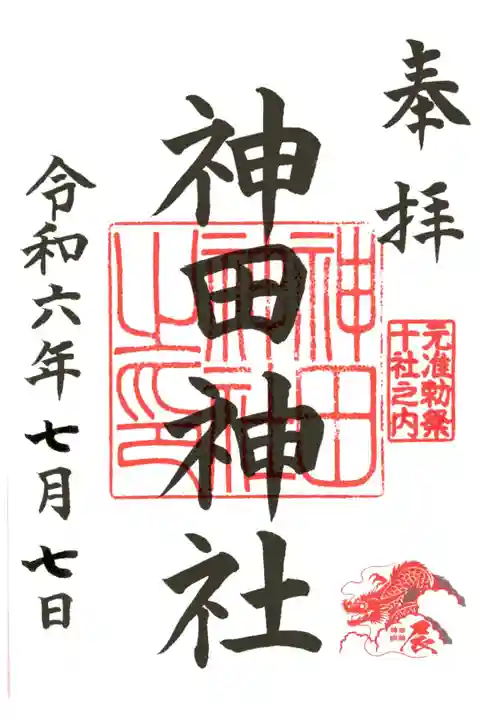 奉拝
元准勅祭
十社之内
辰
神田神社
神田
神社
之印
令和六年七月七日